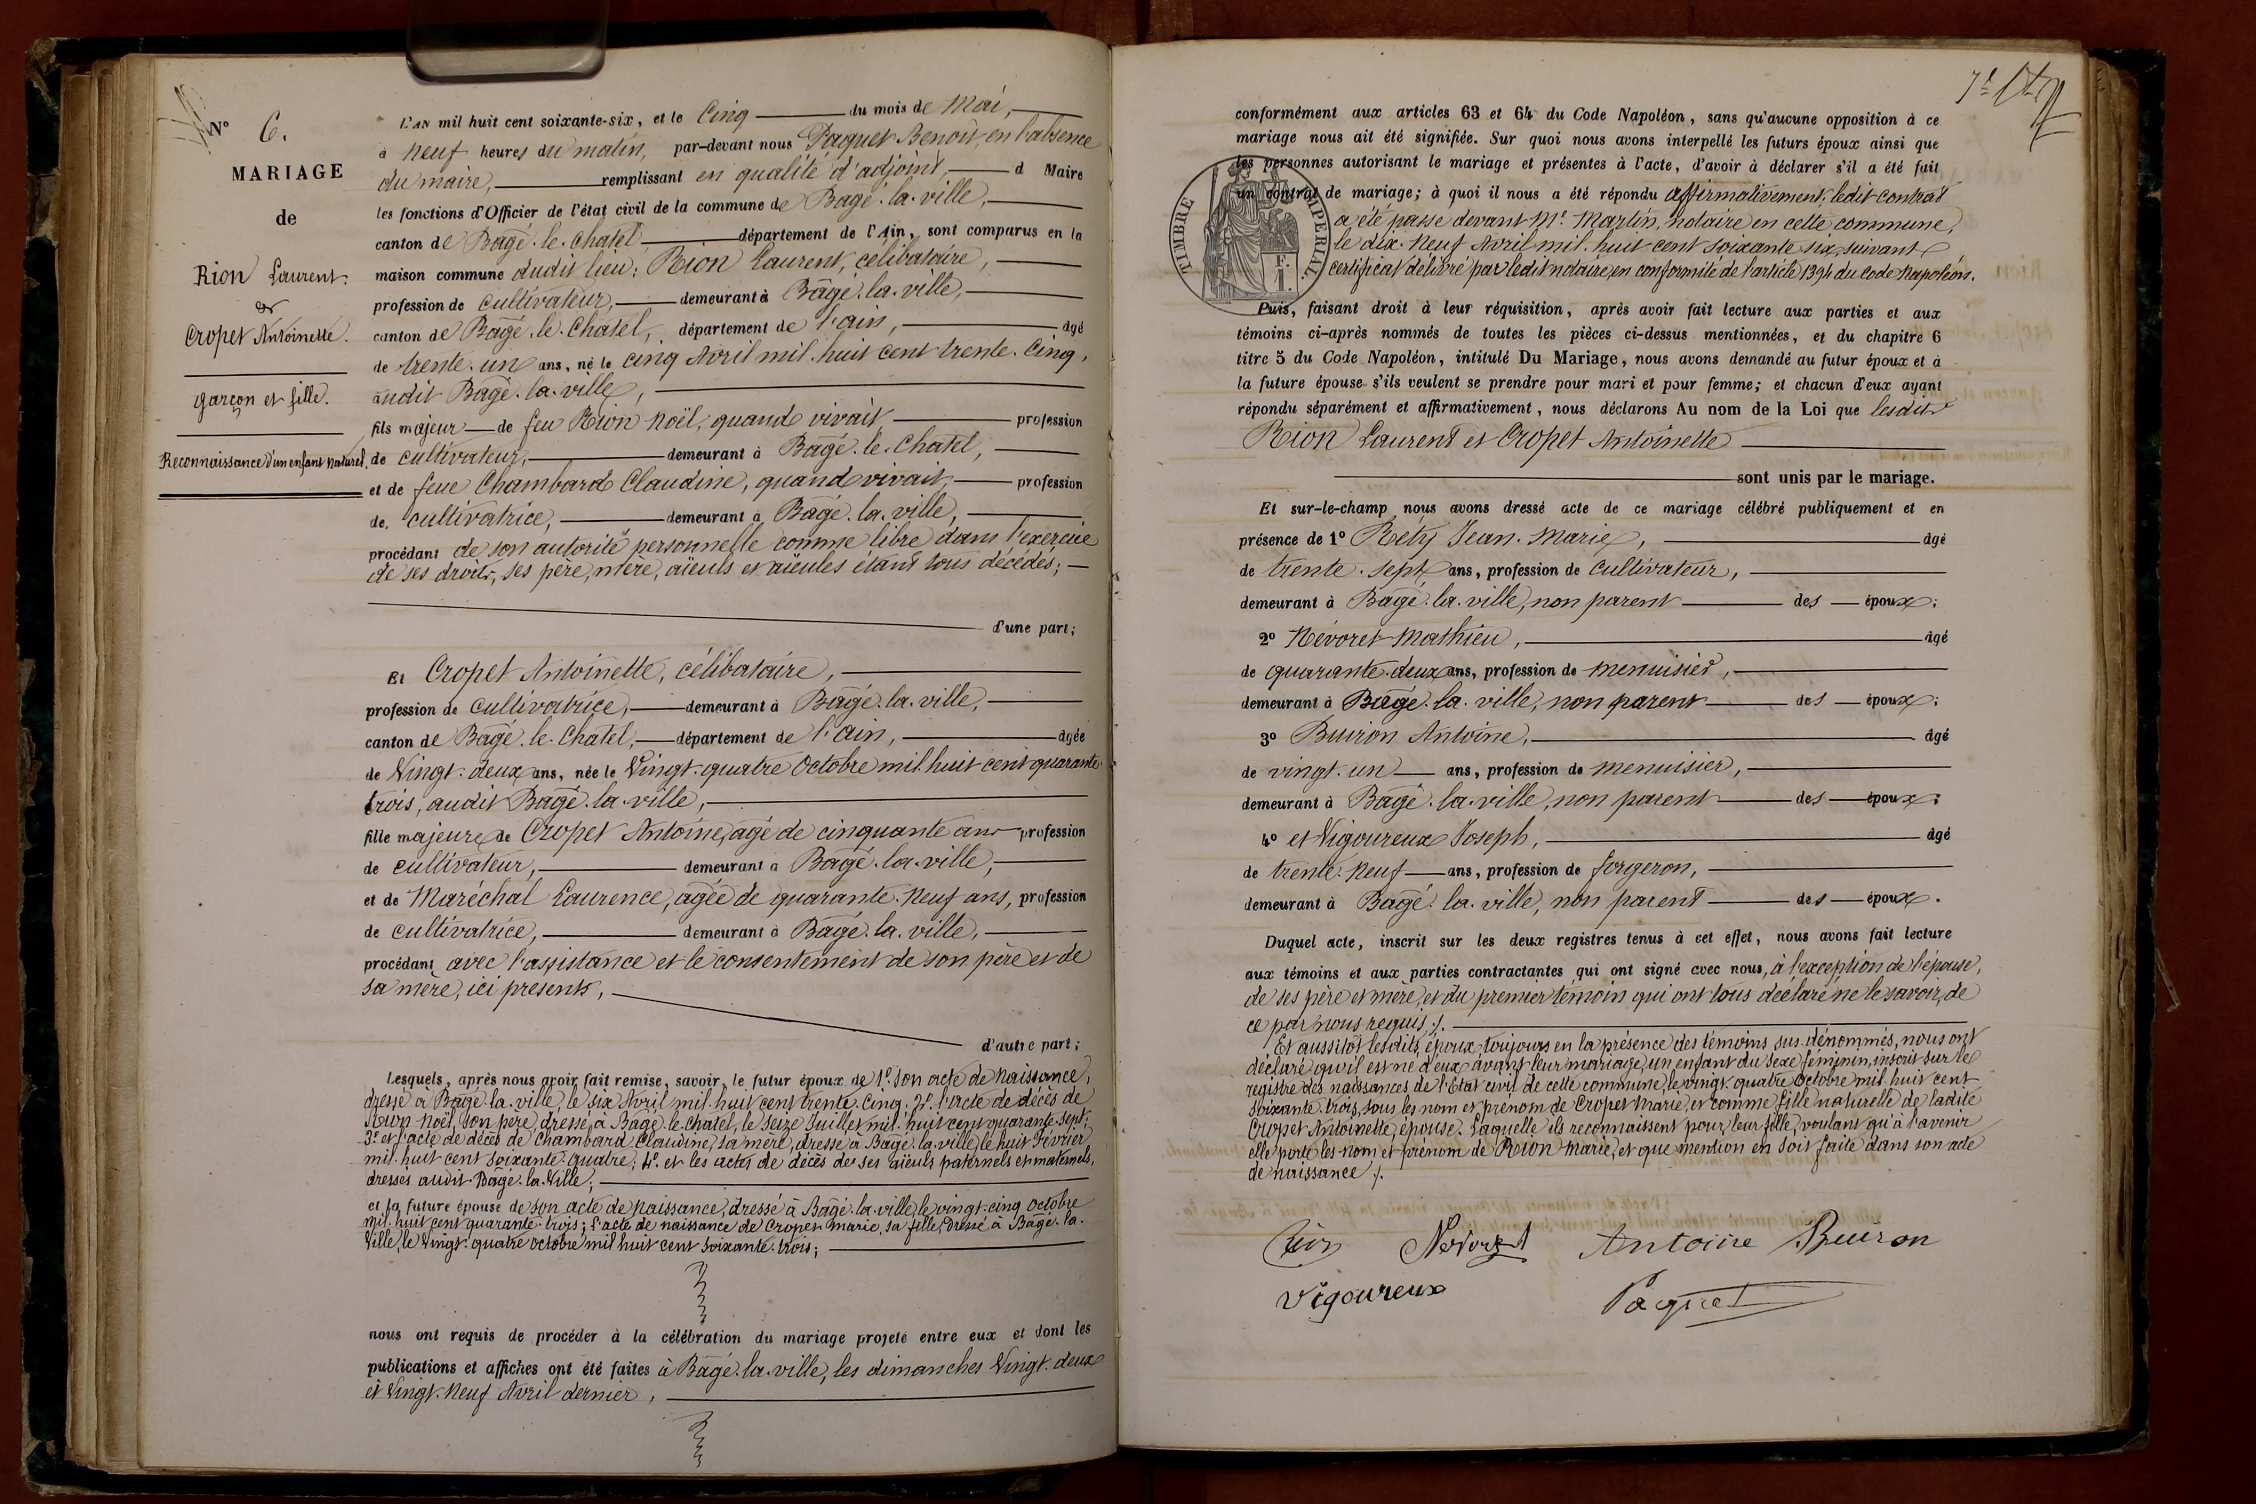 N° 6.
MARIAGE
de
Rion Laurent.
&
Cropet Antoinette.
garçon et fille.
Reconnaissance d'un enfant naturel.
L'AN mil huit cent soixante-six, et le Cinq du mois de Mai,
à neuf heures du matin, par-devant nous Paquet Benoit, en l'absence
du maire, remplissant en qualité d'adjoint, d Maire
les fonctions d'Officier de l'état civil de la commune de Bagé-la-ville,
canton de Bagé-le-Chatel département de l'Ain, sont comparus en la
maison commune dudit lieu: Rion Laurent, célibataire,
profession de cultivateur, demeurant à Bagé-la-ville,
canton de Bagé-le-Chatel, département de l'ain, âgé
de trente-un ans, né le cinq Avril mil-huit cent trente-cinq,
audit Bagé-la-ville,
fils majeur de feu Rion Noël, quand vivait profession
de cultivateur, demeurant à Bagé-le-Chatel,
et de feue Chambard Claudine, quand vivait, profession
de cultivatrice, demeurant à Bagé-la-ville,
procédant de son autorité personnelle comme libre dans l'exercice
de ses droits, ses père, mère, aïeuls et aïeules étant tous décédés;
d'une part;
Et Cropet Antoinette, célibataire,
profession de cultivatrice, demeurant à Bagé-la-ville,
canton de Bagé-le-Chatel, département de l'ain, âgée
de Vingt-deux ans, née le Vingt-quatre Octobre mil-huit cent quarante-
trois, audit Bagé-la-ville,
fille majeure de Cropet Antoine, âgé de cinquante ans profession
de cultivateur, demeurant à Bagé-la-ville,
et de Maréchal Laurence, agée de quarante-neuf ans, profession
de cultivatrice, demeurant à Bagé-la-ville,
procédant avec l'assistance et le consentement de son père et de
sa mère, ici présents,
d'autre part;
Lesquels, après nous avoir fait remise, savoir, le futur époux de 1° son acte de naissance,
dressé à Bagé-la-ville, le six Avril mil-huit cent trente-cinq; 2° l'acte de décès de
Rion Noël, son père, dressé à Bagé-le-Chatel, le seize Juillet mil-huit cent quarante-sept;
3° et l'acte de décès de Chambard Claudine, sa mère, dressé à Bagé-la-ville, le huit Février
mil-huit cent soixante-quatre; 4° et les actes de décès de ses aïeuls paternels et maternels,
dressés audit Bagé-la-Ville;
et la future épouse de son acte de naissance, dressé à Bagé-la-ville, le vingt-cinq Octobre
mil-huit cent quarante-trois; l'acte de naissance de Cropet Marie, sa fille, dressé à Bagé-la-
Ville, le Vingt-quatre octobre mil huit cent soixante-trois;
nous ont requis de procéder à la célébration du mariage projeté entre eux et dont les
publications et affiches ont été faites à Bagé-la-ville, les dimanches Vingt-deux
et Vingt-neuf Avril dernier,
conformément aux articles 63 et 64 du Code Napoléon, sans qu'aucune opposition à ce
mariage nous ait été signifiée. Sur quoi nous avons interpellé les futurs époux ainsi que
les personnes autorisant le mariage et présentes à l'acte, d'avoir à déclarer s'il a été fait
un contrat de mariage; à quoi il nous a été répondu affirmativement; ledit contrat
a été passé devant Mr. Martin, notaire en cette commune,
le dix-neuf Avril mil-huit cent soixante six, suivant
certificat délivré par ledit notaire, en conformité de l'article 1394 du Code Napoléon.
TIMBRE IMPERIAL
F.
1.
Puis, faisant droit à leur réquisition, après avoir fait lecture aux parties et aux
témoins ci-après nommés de toutes les pièces ci-dessus mentionnées, et du chapitre 6
titre 5 du Code Napoléon, intitulé Du Mariage, nous avons demandé au futur époux et à
la future épouse s'ils veulent se prendre pour mari et pour femme; et chacun d'eux ayant
répondu séparément et affirmativement, nous déclarons Au nom de la Loi que lesdits
Rion Laurent et Cropet Antoinette
sont unis par le mariage.
Et sur-le-champ nous avons dressé acte de ce mariage célébré publiquement et en
présence de 1° Réty Jean-Marie, âgé
de trente-sept ans, profession de cultivateur,
demeurant à Bagé-la-ville, non parent des époux;
2° Névoret Mathieu, âgé
de quarante-deux ans, profession de menuisier,
demeurant à Bagé-la-ville, non parent des époux;
3° Buiron Antoine, âgé
de vingt-un ans, profession de menuisier,
demeurant à Bagé-la-ville, non parent des époux;
4° et Vigoureux Joseph, âgé
de trente-neuf ans, profession de forgeron,
demeurant à Bagé-la-ville, non parent des époux.
Duquel acte, inscrit sur les deux registres tenus à cet effet, nous avons fait lecture
aux témoins et aux parties contractantes qui ont signé avec nous, à l'exception de l'épouse,
de ses père et mère, et du premier témoin qui ont tous déclaré ne le savoir, de
ce par nous requis ./.
Et aussitôt lesdits époux, toujours en la présence des témoins sus-dénommés, nous ont
déclaré qu'il est né d'eux avant leur mariage, un enfant du sexe féminin, inscrit sur le
registre des naissances de l'Etat civil de cette commune, le vingt-quatre Octobre mil-huit cent
soixante-trois, sous les nom et prénom de Cropet Marie, et comme fille naturelle de ladite
Cropet Antoinette, épouse. Laquelle ils reconnaissent pour leur fille, voulant qu'à l'avenir
elle porte les nom et prénom de Rion Marie, et que mention en soit faite dans son acte
de naissance ./.
Rion Nevoret Antoine Buiron
Vigoureux Paquet